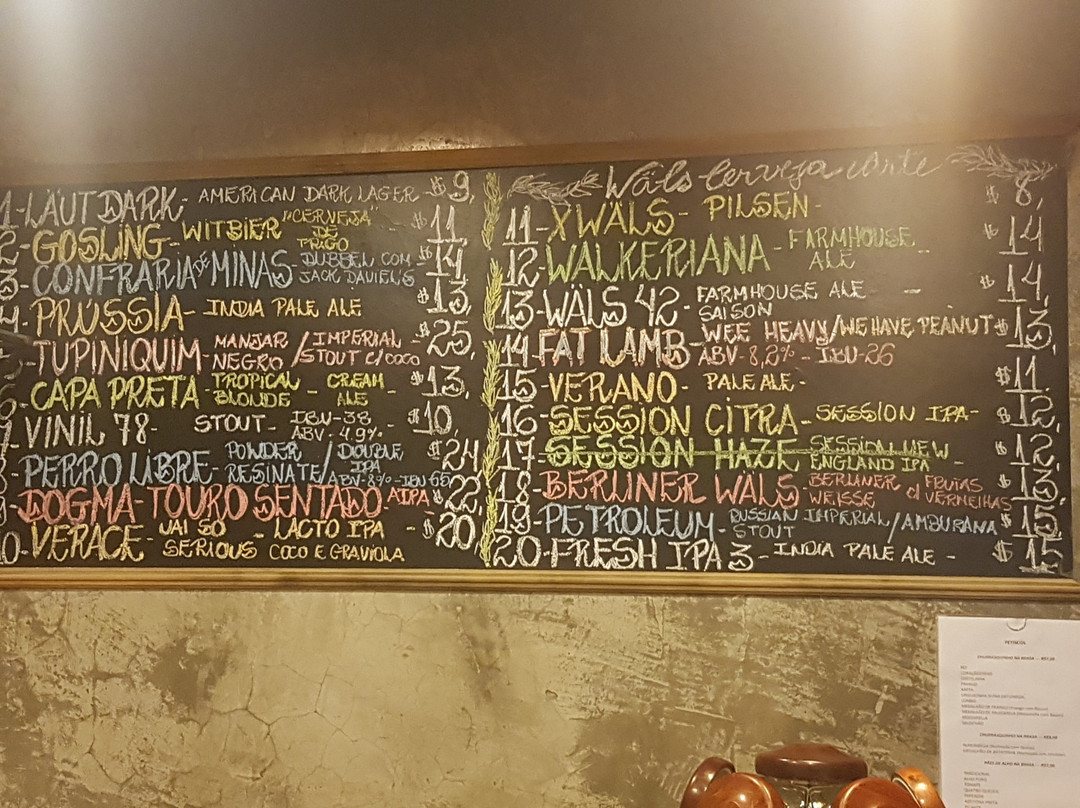 1-LÄUT DARK- AMERICAN DARK LAGER - $9,
2-GOSLING-WITBIER "CERVEJA DE TRIGO $11,
3-CONFRARIA DE MINAS-DUBBEL COM JACK DANIEL'S $14,
4-PRÚSSIA- INDIA PALE ALE $13,
TUPINIQUIM- MANJAR NEGRO / IMPERIAL STOUT C/COCO $25,
6-CAPA PRETA-TROPICAL BLONDE - CREAM ALE - $13,
7-VINIL 78- STOUT - IBU-38 ABV-4,9%- $10,
8-PERRO LIBRE- POWDER RESINATE / DOUBLE IPA ABV-8%-IBU 65 $24
9-DOGMA TOURO SENTADO-AIPA $22,
10-VERACE- UAI SO SERIOUS - LACTO IPA COCO E GRAVIOLA - $20,
Wäls Cerveja
11-XWÄLS- PILSEN- $8,
12-WALKERIANA-FARMHOUSE ALE $14
13-WÄLS 42- FARMHOUSE ALE SAISON - $14,
14-FAT LAMB-WEE HEAVY/WE HAVE PEANUT ABV-8,2%-IBU-26 $13,
15-VERANO- PALE ALE- $11
16-SESSION CITRA-SESSION IPA- $12,
17-SESSION HAZE SESSION NEW ENGLAND IPA - $12,
18-BERLINER WÄLS-BERLINER WEISSE C/ FRUTAS VERMELHAS $13,
19-PETROLEUM-RUSSIAN IMPERIAL STOUT /AMBURANA $15,
20-FRESH IPA 3-INDIA PALE ALE - $15